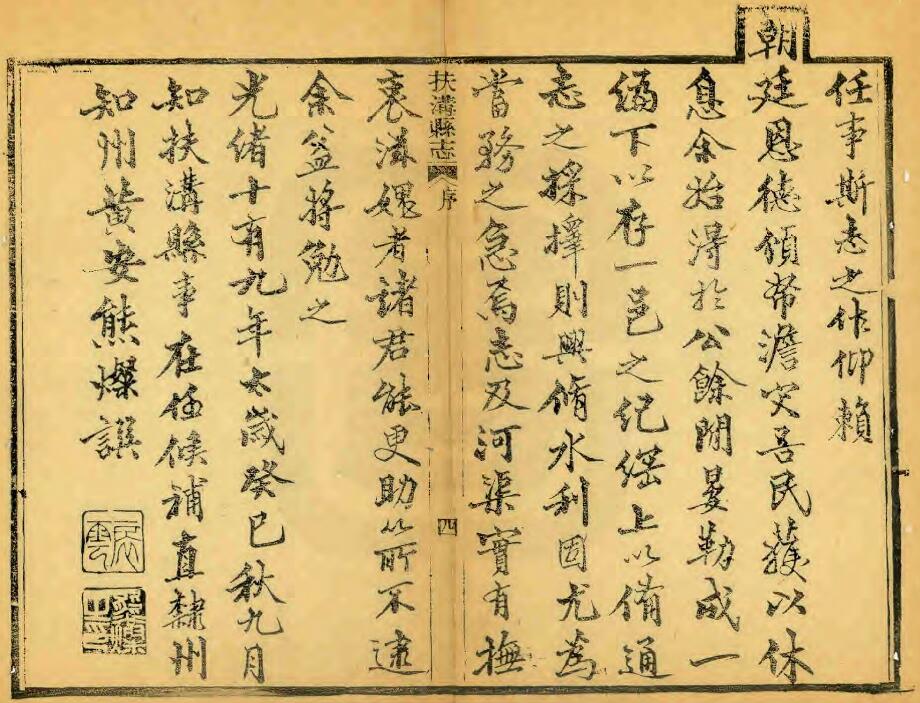 任事斯志之作仰賴
朝廷恩德傾帑澹灾吾民獲以休
息余始得於公餘閒晏勒成一
編下以存一邑之紀緜上以備通
志之採擇則興脩水利固尤爲
當務之急焉志及河渠實有撫
扶溝縣志 序 四
衷滋媿者諸君能更助所不逮
余益將勉之
光緒十有九年太歲癸巳秋九月
知扶溝縣事在任候補直隸州
知州黃安熊燦譔